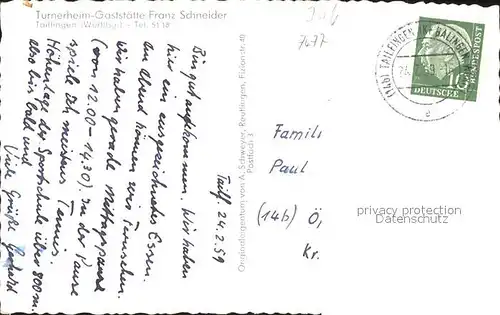 Turnerheim-Gaststätte Franz Schneider
Tailfingen (Württbg.) - Tel. 5158
Tailf. 24.2.59
Bin gut angekommen. Wir haben
hier ein ausgezeichnetes Essen.
am Abend können wir Fernsehen.
Wir haben gerade Mittagspause
(von 12.00 - 14.30). In der Pause
spiele ich meistens Tennis.
Höhenlage der Sportschule über 800 m.
also bis bald und
Viele Grüße
Originaleigentum von A. Schweyer, Reutlingen, Fizionstr. 40
Postfach 3
7477
(14b) TAILFINGEN
BALINGEN
e
10
DEUTSCHE
BUNDESPOST
Famili
Paul
(14b) Ö
Kr.
privacy protection
Datenschutz